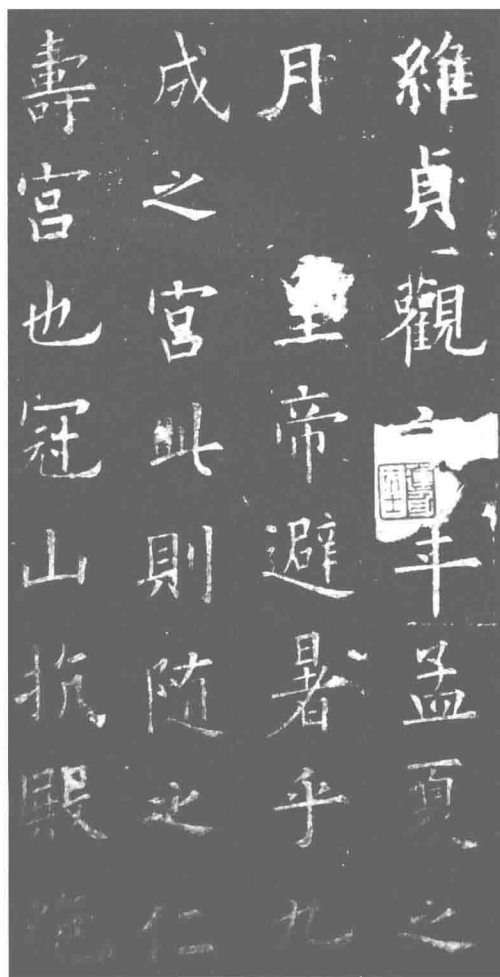 維貞觀六年孟夏之
月 皇帝避暑乎九
成之宮此則随之仁
壽宮也冠山抗殿絶